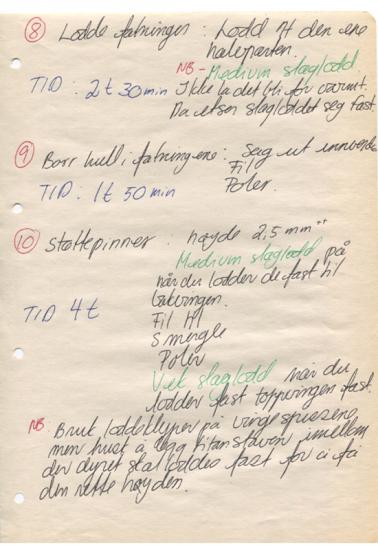 ⑧ Lodde fatninger : Lodd på den ene
halvparten.
NB - Medium slaglodd
TID : 2 t 30 min Ikke la det bli for varmt.
Da etser slagloddet seg fast.
⑨ Borr hull i fatningene : Sag ut innvendig
Fil
TID : 1t 50 min Poler.
⑩ Støttepinner : høyde 2,5 mm
Medium slaglodd på
når du lodder de fast til
TID 4 t
Fil til
Smergle
Poler
Vek slaglodd når du
lodder fast toppringen fast.
NB. Bruk loddeklyper på vingespissene
men husk å legg titanstaven imellom
der dyret skal loddes fast for å få
den rette høyden.